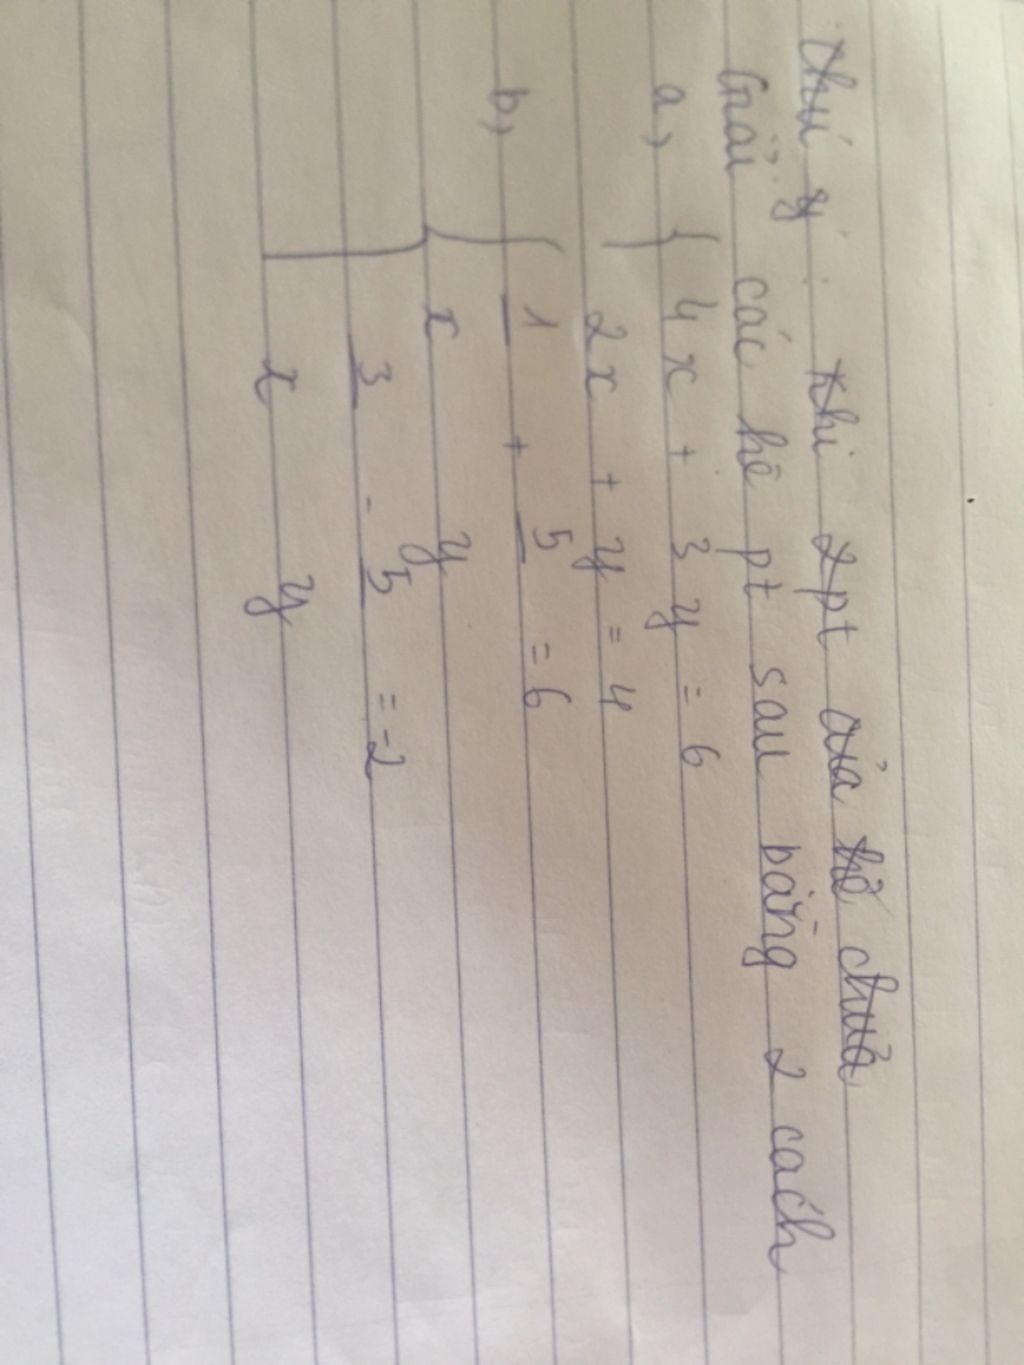 Chú ý: khi 2pt của hệ chứa
Giải các hệ pt sau bằng 2 cách
a, { 4x + 3y = 6
2x + y = 4
b, { 1/x + 5/y = 6
3/x - 5/y = -2